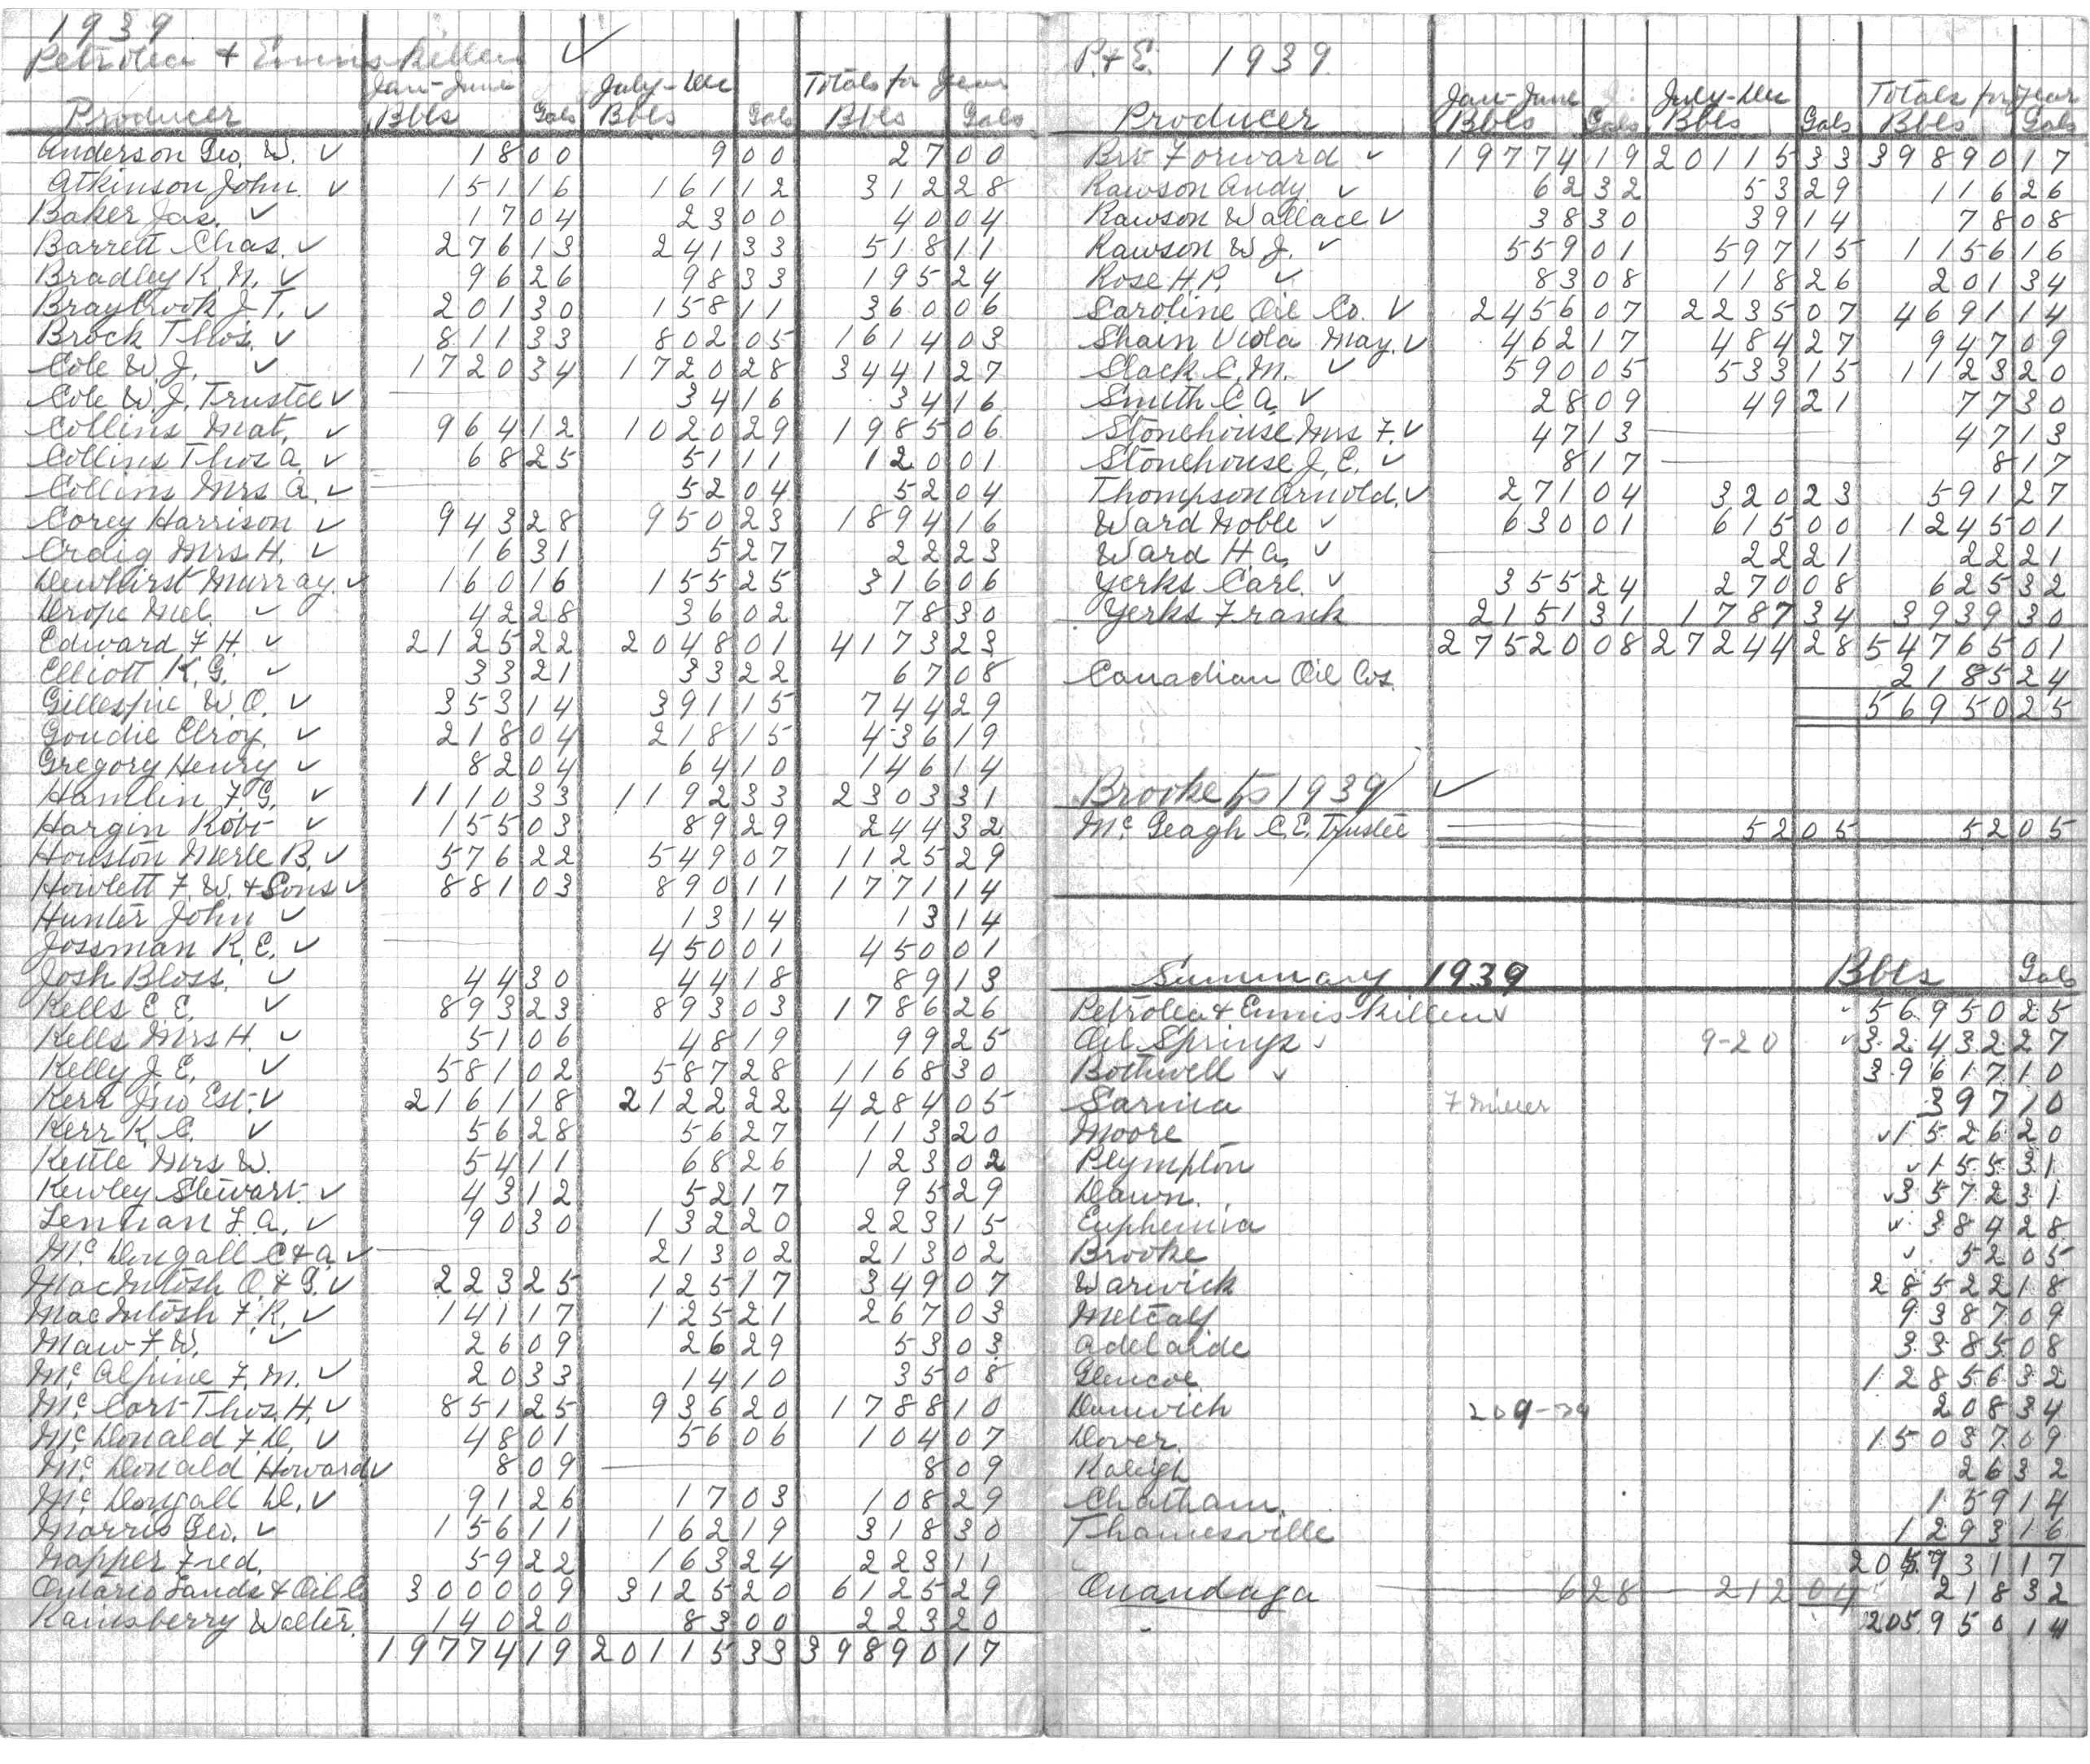 1939
Petrolea + Enniskillen ✓
Jan-June July-Dec Totals for Year
Producer Bbls Gals Bbls Gals Bbls Gals
Anderson Geo. W. ✓ 18 00 9 00 27 00
Atkinson John ✓ 151 16 161 12 312 28
Baker Jas. ✓ 17 04 23 00 40 04
Barrett Chas. ✓ 276 13 241 33 518 11
Bradley R. N. ✓ 96 26 98 33 195 24
Braybrook J. T. ✓ 201 30 158 11 360 06
Brock Thos. ✓ 811 33 802 05 1614 03
Cole W. J. ✓ 1720 34 1720 28 3441 27
Cole W. J. Trustee ✓ — 34 16 34 16
Collins Mat. ✓ 964 12 1020 29 1985 06
Collins Thos A. ✓ 68 25 51 11 120 01
Collins Mrs A. ✓ — 52 04 52 04
Corey Harrison ✓ 943 28 950 23 1894 16
Craig Mrs H. ✓ 16 31 5 27 22 23
Dewhirst Murray. ✓ 160 16 155 25 316 06
Drope Mel. ✓ 42 28 36 02 78 30
Edward F. H. ✓ 2125 22 2048 01 4173 23
Elliott K. G. ✓ 33 21 33 22 67 08
Gillespie W. O. ✓ 353 14 391 15 744 29
Goudie Elroy. ✓ 218 04 218 15 436 19
Gregory Henry ✓ 82 04 64 10 146 14
Hamlin F. G. ✓ 1110 33 1192 33 2303 31
Hargin Robt ✓ 155 03 89 29 244 32
Houston Merle B. ✓ 576 22 549 07 1125 29
Howlett F. W. + Sons ✓ 881 03 890 11 1771 14
Hunter John ✓ 13 14 13 14
Jossman R. E. ✓ — 450 01 450 01
Josh Bloss. ✓ 44 30 44 18 89 13
Kells E. E. ✓ 893 23 893 03 1786 26
Kells Mrs H. ✓ 51 06 48 19 99 25
Kelly J. E. ✓ 581 02 587 28 1168 30
Kerr Jno Est. ✓ 2161 18 2122 22 4284 05
Kerr K. C. ✓ 56 28 56 27 113 20
Kettle Mrs W. 54 11 68 26 123 02
Kewley Stewart. ✓ 43 12 52 17 95 29
Lennan F. A. ✓ 90 30 132 20 223 15
Mc Dougall C + A. ✓ — 213 02 213 02
MacIntosh O. + G. ✓ 223 25 125 17 349 07
MacIntosh F. R. ✓ 141 17 125 21 267 03
Maw F. W. ✓ 26 09 26 29 53 03
Mc Alpine F. M. ✓ 20 33 14 10 35 08
Mc Cort Thos. H. ✓ 851 25 936 20 1788 10
Mc Donald F. D. ✓ 48 01 56 06 104 07
Mc Donald Howard ✓ 8 09 — 8 09
Mc Dougall D. ✓ 91 26 17 03 108 29
Morris Geo. ✓ 156 11 162 19 318 30
Napper Fred. 59 22 163 24 223 11
Ontario Lands + Oil Co 3000 09 3125 20 6125 29
Rainsberry Walter. 140 20 83 00 223 20
19774 19 20115 33 39890 17
P. + E. 1939
Jan-June July-Dec Totals for Year
Producer Bbls Gals Bbls Gals Bbls Gals
Brt Forward ✓ 19774 19 20115 33 39890 17
Rawson Andy ✓ 62 32 53 29 116 26
Rawson Wallace ✓ 38 30 39 14 78 08
Rawson W. J. ✓ 559 01 597 15 1156 16
Rose H. P. ✓ 83 08 118 26 201 34
Saroline Oil Co. ✓ 2456 07 2235 07 4691 14
Shain Viola May. ✓ 462 17 484 27 947 09
Slack C. M. ✓ 590 05 533 15 1123 20
Smith C. A. ✓ 28 09 49 21 77 30
Stonehouse Mrs F. ✓ 47 13 — 47 13
Stonehouse J. E. ✓ 8 17 — 8 17
Thompson Arnold. ✓ 271 04 320 23 591 27
Ward Noble ✓ 630 01 615 00 1245 01
Ward H. A. ✓ — 22 21 22 21
Yerks Carl. ✓ 355 24 270 08 625 32
Yerks Frank 2151 31 1787 34 3939 30
27520 08 27244 28 54765 01
Canadian Oil Cos. 2185 24
56950 25
Brooke Tp 1939 ✓
Mc Geagh C. E. Trustee — 52 05 52 05
Summary 1939 Bbls Gals
Petrolea + Enniskillen ✓ 56950 25
Oil Springs ✓ 9-20 ✓ 32432 27
Bothwell ✓ 39617 10
Sarnia 397 10
Moore ✓ 1526 20
Plympton ✓ 155 31
Dawn. ✓ 3572 31
Euphemia ✓ 384 28
Brooke ✓ 52 05
Warwick 28522 18
Metcalf 9387 09
Adelaide 3385 08
Glencoe 12856 32
Dunwich 209-34 208 34
Dover. 15037 09
Raleigh 26 32
Chatham. 159 14
Thamesville 1293 16
205731 17
Onandaga 6 28 212 04 218 32
205950 14